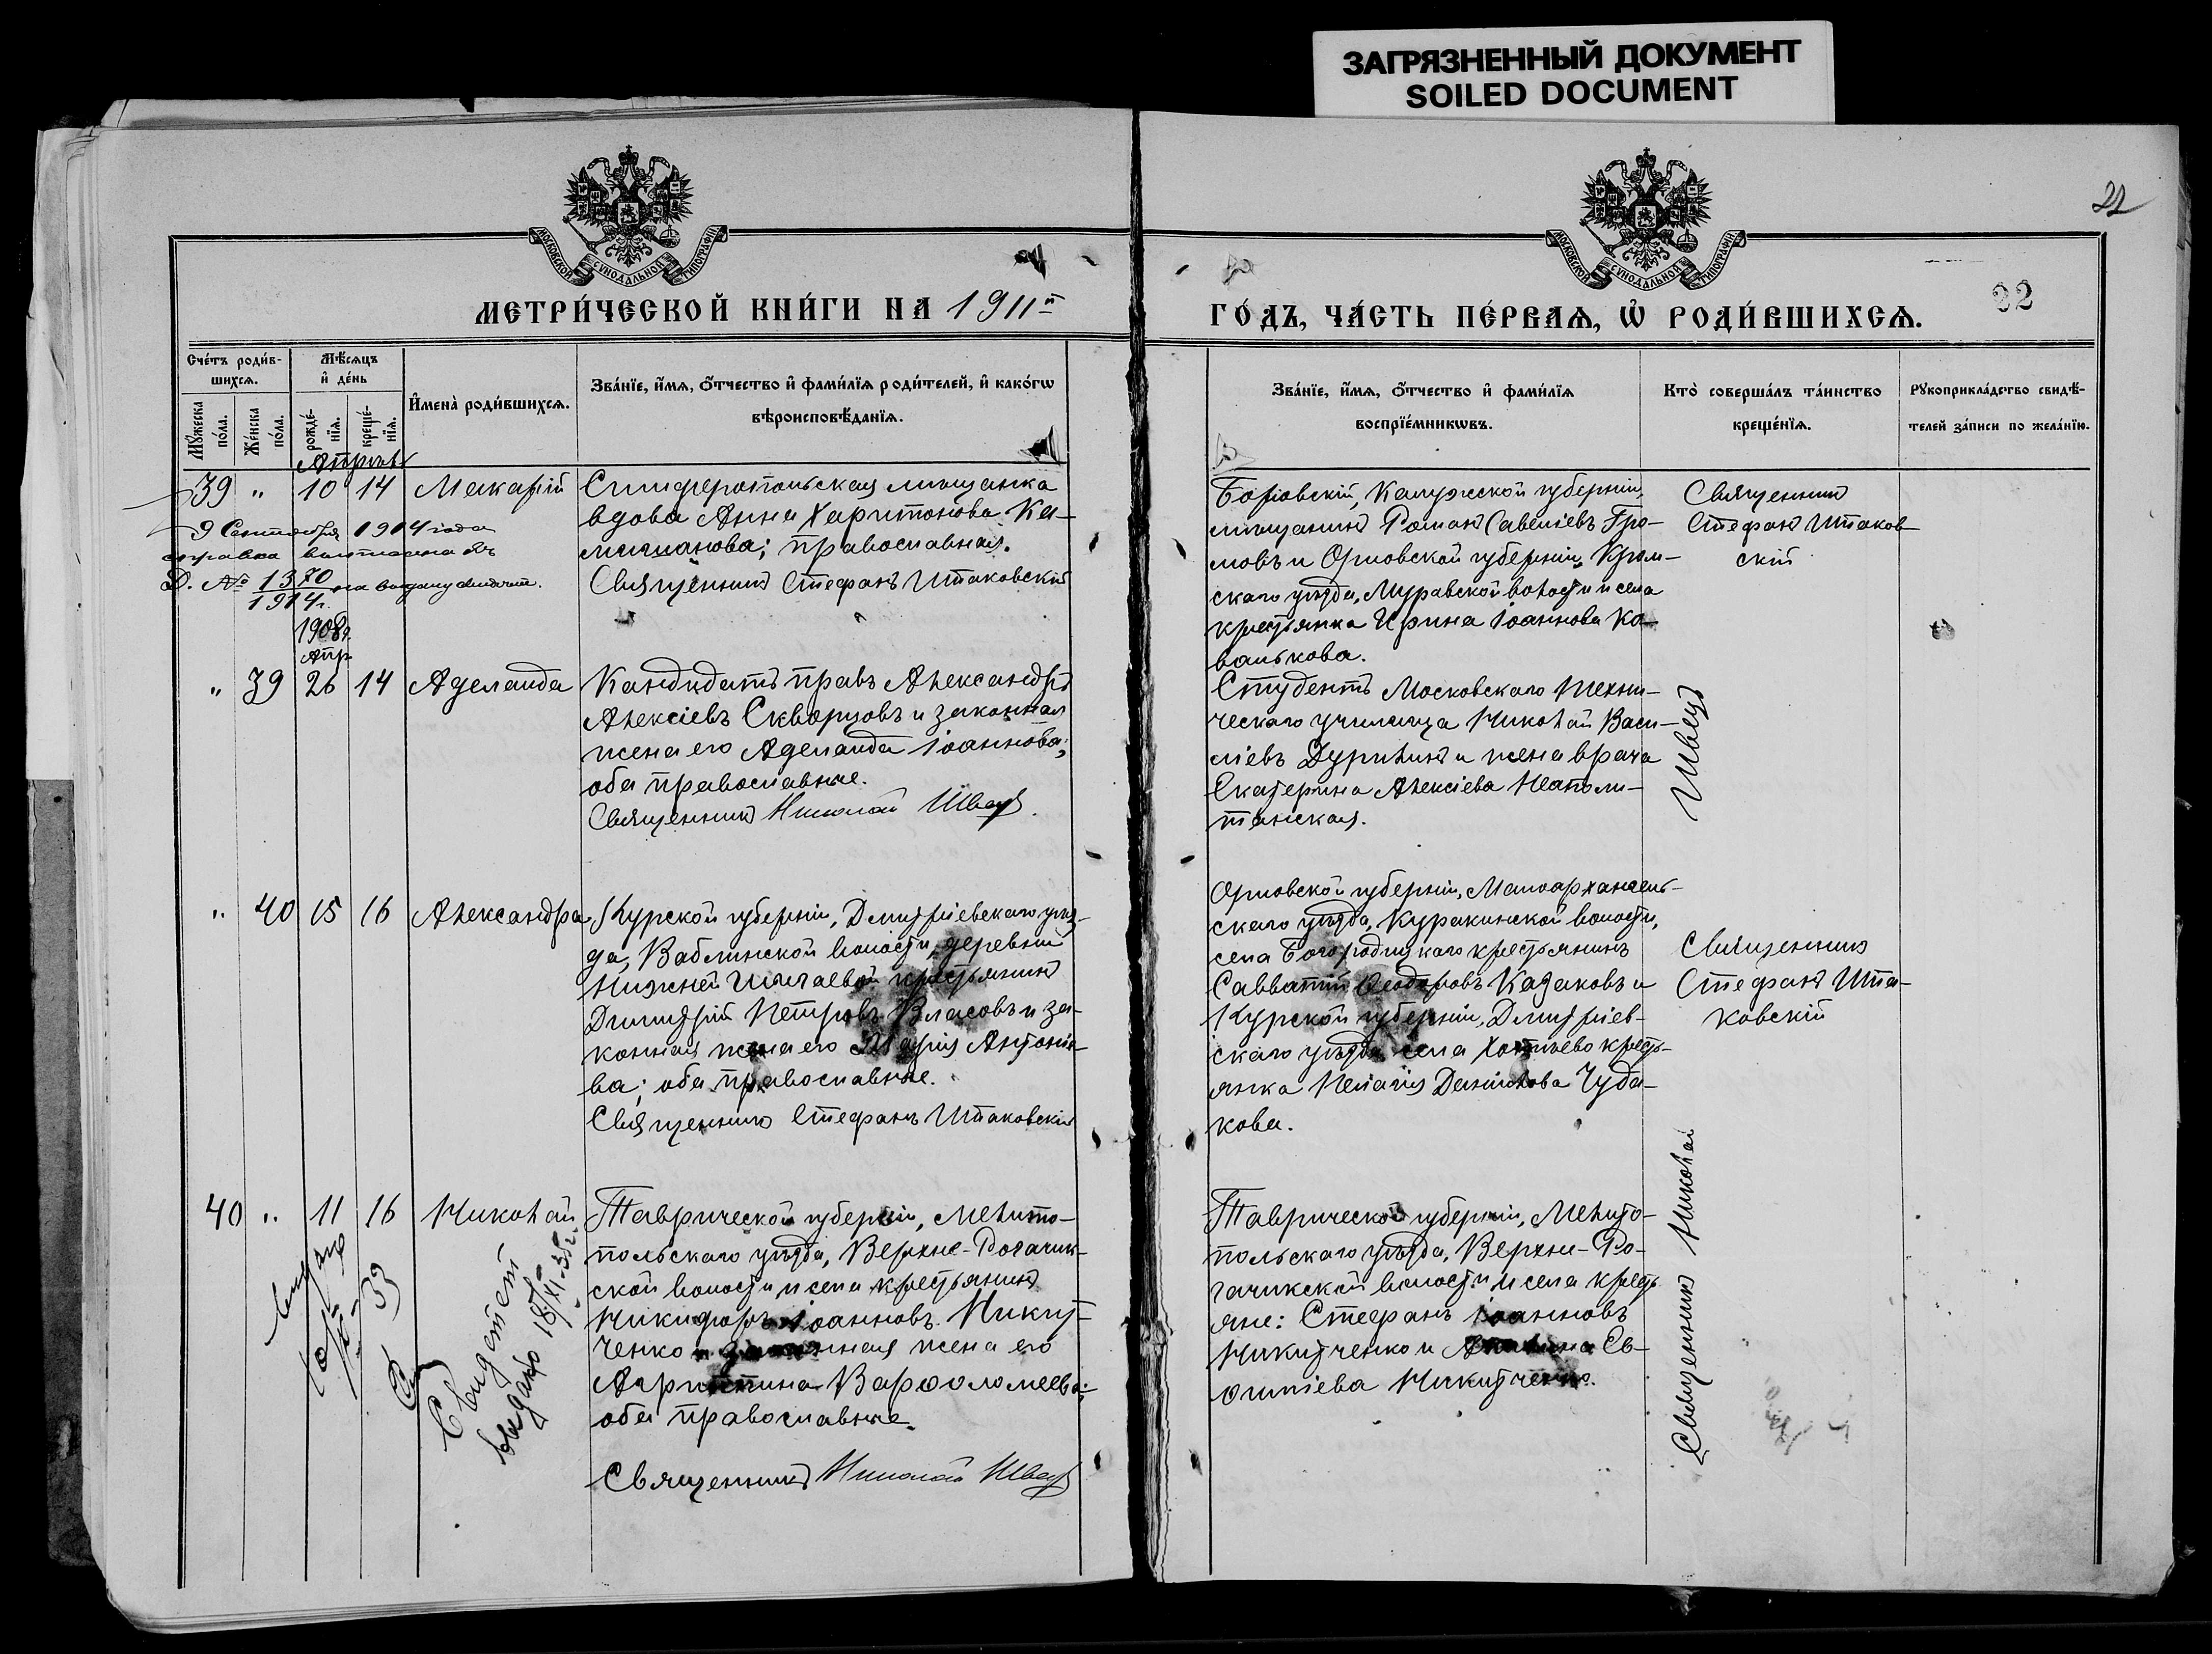 ЗАГРЯЗНЕННЫЙ ДОКУМЕНТ
SOILED DOCUMENT
22
МОСКОВСКОЙ СѴНОДАЛЬНОЙ ТИПОГРАФІИ
МОСКОВСКОЙ СѴНОДАЛЬНОЙ ТИПОГРАФІИ
МЕТРИ́ЧЕСКОЙ КНИ́ГИ НА 1911й
ГО́ДЪ, ЧА́СТЬ ПЕ́РВАѦ, Ѡ҆ РОДИ́ВШИХСѦ.
22
Сче́тъ роди́в-
шихсѧ.
Мѣ́сѧцъ
и҆ де́нь
Мꙋ́жеска
по́ла.
Же́нска
по́ла.
рожде́-
нїѧ.
креще́-
нїѧ.
И҆мена̀ роди́вшихсѧ.
Зва́нїе, и҆́мѧ, ѻ҆́тчество и҆ фами́лїѧ роди́телей, и҆ како́гѡ
вѣроисповѣ́данїѧ.
Зва́нїе, и҆́мѧ, ѻ҆́тчество и҆ фами́лїѧ
воспрїе́мникѡвъ.
Кто̀ соверша́лъ та́инство
креще́нїѧ.
Рꙋкоприкла́дство свидѣ́-
телей за́писи по жела́нїю.
Апрѣль
39 " 10 14 Макарій
Симферопольская мѣщанка
вдова Анна Харитонова Ка-
православная.
Священникъ Стефанъ Штаковскій
9 Сентября 1914 года
справка
Д. № 1370
1914 г.
на выдачу
Боровскій, Калужской губерніи,
мѣщанинъ Романъ Савеліевъ Гро-
мовъ и Орловской губерніи, Кром-
скаго уѣзда, Муравской волости и села
крестьянка Ирина Іоаннова Ко-
валькова.
Священникъ
Стефанъ Штаков-
скій
1908 г.
Апр.
" 39 26 14 Аделаида
Кандидатъ правъ Александръ
Алексіевъ Скворцовъ и законная
жена его Аделаида Іоаннова;
оба православные.
Священникъ Николай Швецъ
Студентъ Московскаго техни-
ческаго училища Николай Васи-
ліевъ Дурилинъ и жена врача
Екатерина Алексіева Неаполи-
танская.
Швецъ
" 40 15 16 Александра
Курской губерніи, Дмитріевскаго уѣз-
да, Ваблинской волости, деревни
Нижней крестьянинъ
Димитрій Петровъ Власовъ и за-
конная жена его Марія Антоніе-
ва; оба православные.
Священникъ Стефанъ Штаковскій
Орловской губерніи, Малоархангель-
скаго уѣзда, Куракинской волости,
села Богородицкаго крестьянинъ
Савватій Ѳеодоровъ Казаковъ и
Курской губерніи, Дмитріев-
скаго уѣзда села Хотьево кресть-
янка Пелагія Даніилова Чуда-
кова.
Священникъ
Стефанъ Шта-
ковскій
40 " 11 16 Николай
Таврической губерніи, Мелито-
польскаго уѣзда, Верхне-Рогачик-
ской волости и села крестьянинъ
Никифоръ Іоанновъ Никит-
ченко и законная жена его
Агриппина Варѳоломеева;
оба православные.
Священникъ Николай Швецъ
Свидетел
выдано 18/XI-35 г.
Таврической губерніи, Мелито-
польскаго уѣзда, Верхне-Ро-
гачикской волости и села кресть-
яне: Стефанъ Іоанновъ
Никитченко и Ев-
Никитченко.
Священникъ Николай